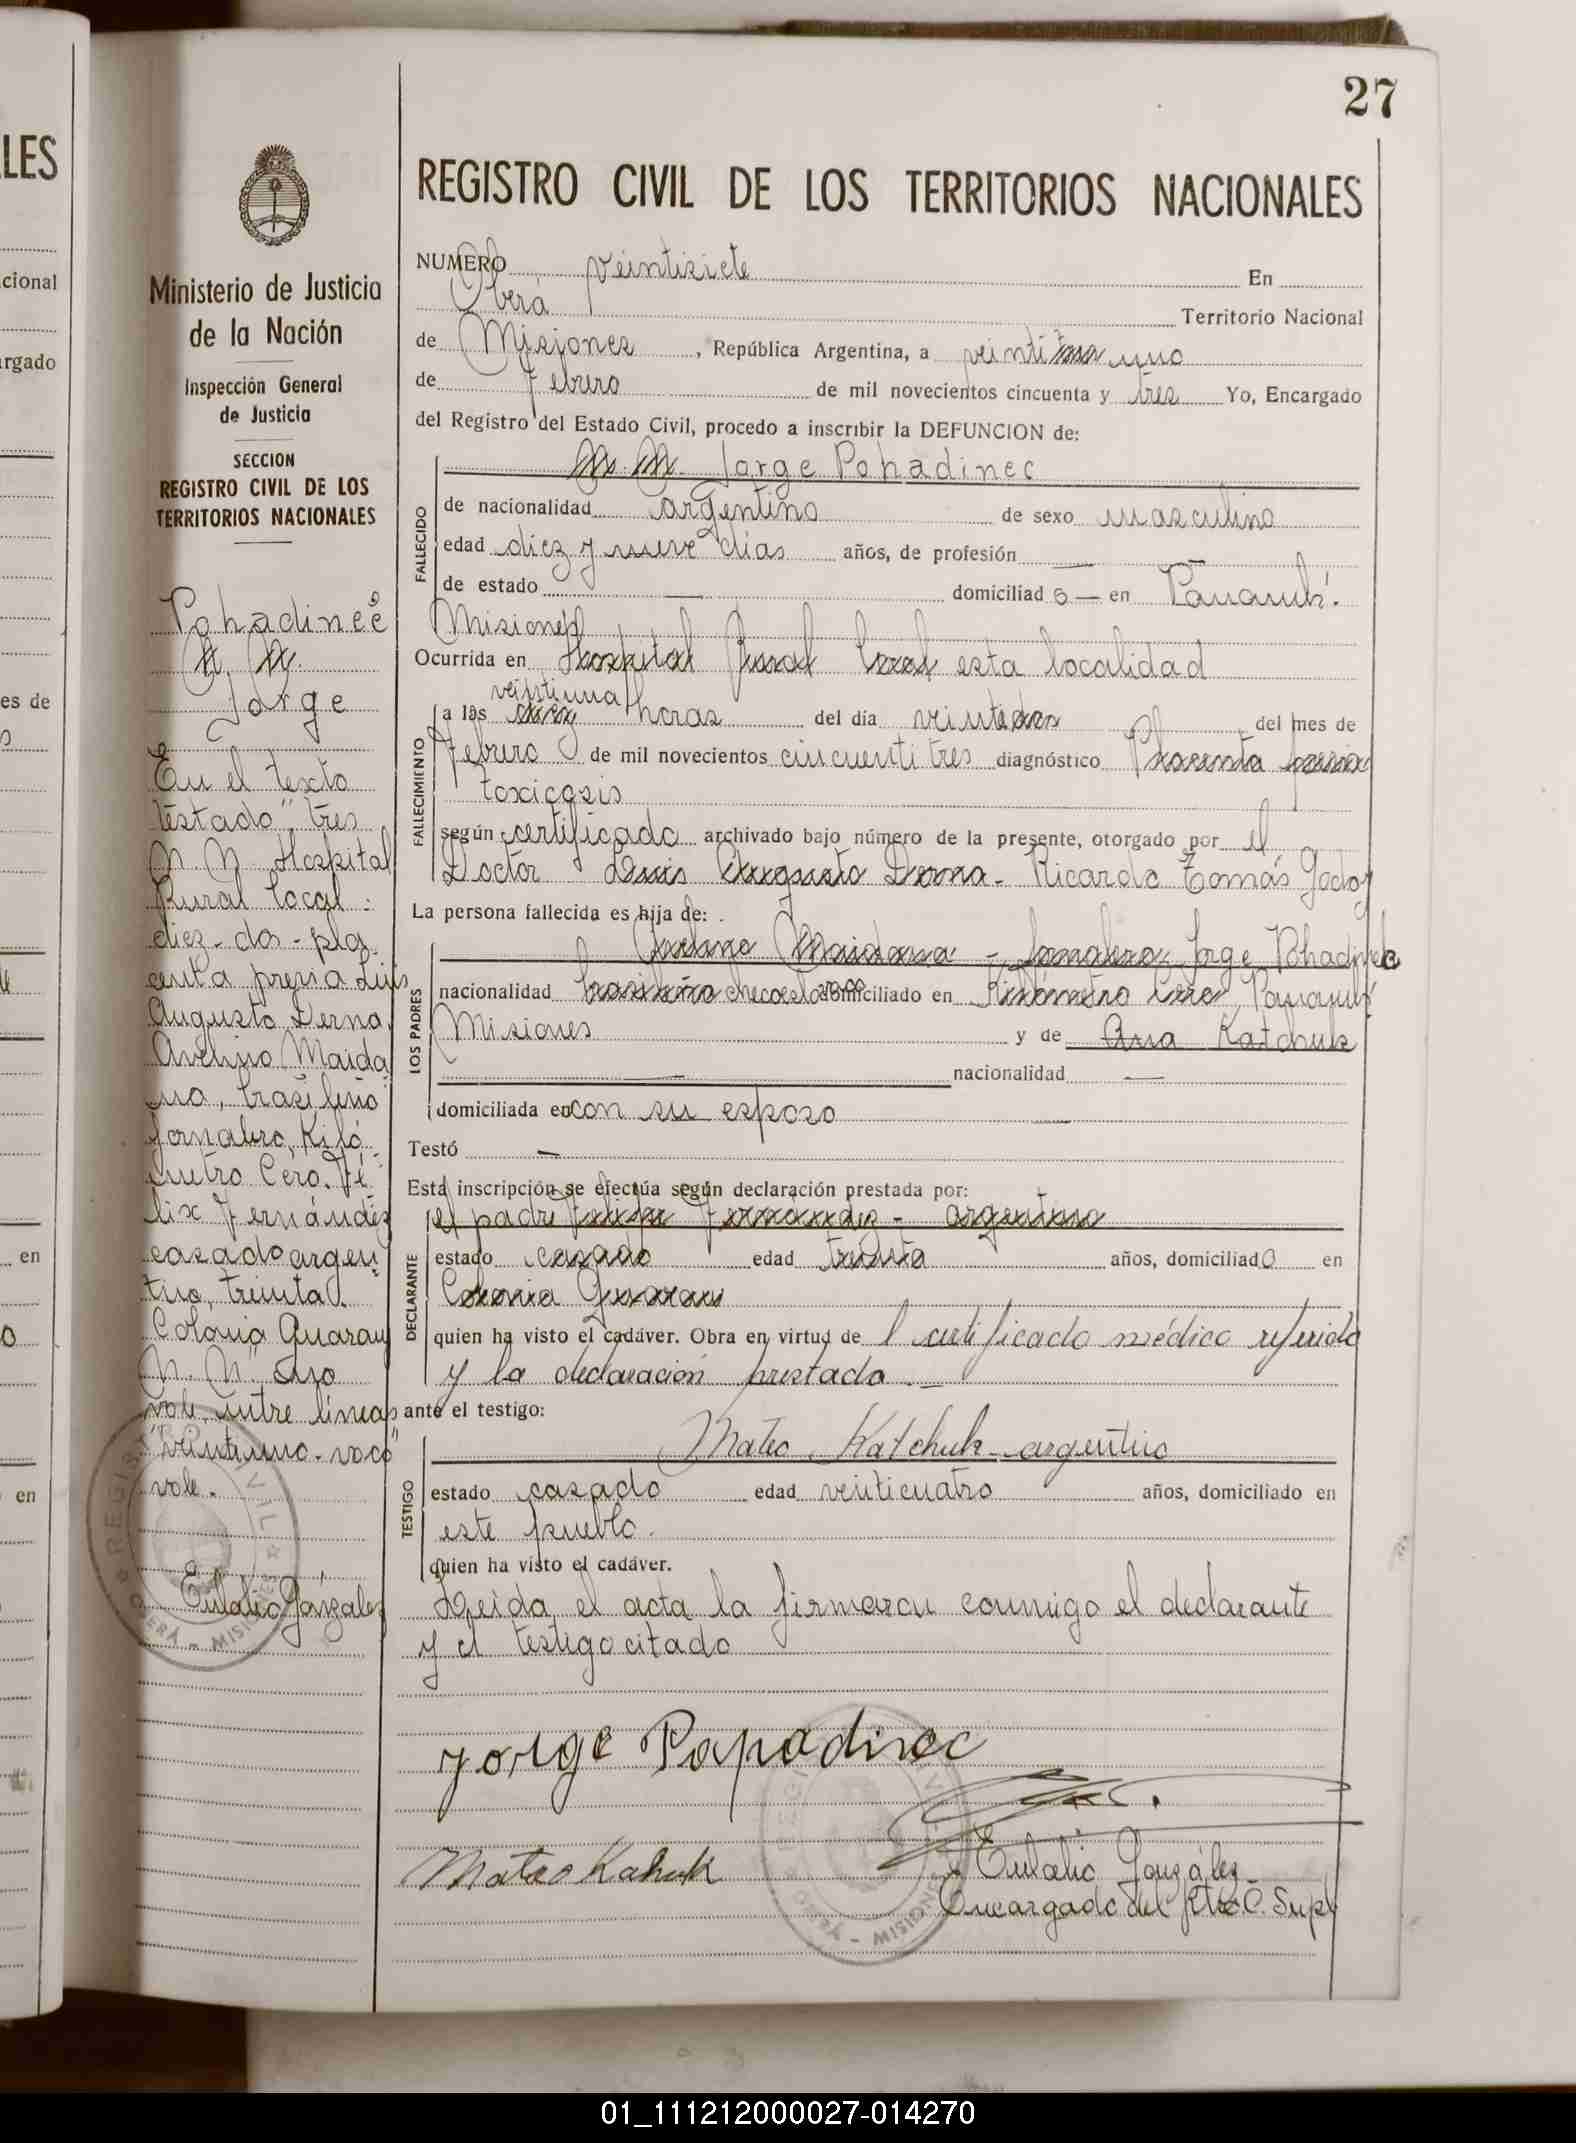 27
LES
cional
rgado
es de
en
en
Ministerio de Justicia
de la Nación
Inspección General
de Justicia
SECCION
REGISTRO CIVIL DE LOS
TERRITORIOS NACIONALES
Pohadinec
N. N.
Jorge
En el texto
testado "tres
N. N. Hospital
Rural local:
diez - dos - pla
centa previa Luis
Augusto Derna
Avelino Maida
na, brasileño
Jornalero, Kiló
metro Cero. Fé
lix Fernández
casado argen
tino, treinta.
Colonia Guarany
N. N."
vale, entre líneas
"veintiuno-
vale.
Eulalio González
REGISTRO CIVIL DE LOS TERRITORIOS NACIONALES
NUMERO veintisiete En
Oberá Territorio Nacional
de Misiones, República Argentina, a veintitres uno
de Febrero de mil novecientos cincuenta y tres Yo, Encargado
del Registro del Estado Civil, procedo a inscribir la DEFUNCION de:
FALLECIDO
N. N. Jorge Pohadinec
de nacionalidad argentino de sexo masculino
edad diez y nueve dias años, de profesión —
de estado — domiciliad o — en Panambí.
Misiones
Ocurrida en Hospital Rural local esta localidad
FALLECIMIENTO
veintiuna
a las diez horas del día veintedos del mes de
Febrero de mil novecientos cincuentitres diagnóstico Placenta previa
toxicosis
según certificado archivado bajo número de la presente, otorgado por el
Doctor Luis Augusto Derna - Ricardo Tomás Godoy
La persona fallecida es hija de:
LOS PADRES
Avelino Maidana - Jornalero, Jorge Pohadinec
nacionalidad brasileño domiciliado en Kilómetro Cero, Panambí
Misiones y de Ana Katchuk
— nacionalidad —
domiciliada en con su esposo
Testó —
Esta inscripción se efectúa según declaración prestada por:
DECLARANTE
el padre Fernandez - argentino
estado casado edad treinta años, domiciliado en
Colonia Guarany
quien ha visto el cadáver. Obra en virtud de l certificado médico referido
y la declaración prestada.—
ante el testigo:
TESTIGO
Mateo Katchuk - argentino
estado casado edad veinticuatro años, domiciliado en
este pueblo.
quien ha visto el cadáver.
Leida el acta la firmaron conmigo el declarante
y el testigo citado
Jorge Papadinec
Mateo Kahuk
Eulalio González
Encargado del Supl
REGISTRO CIVIL
OBERÁ - MISIONES
01_111212000027-014270